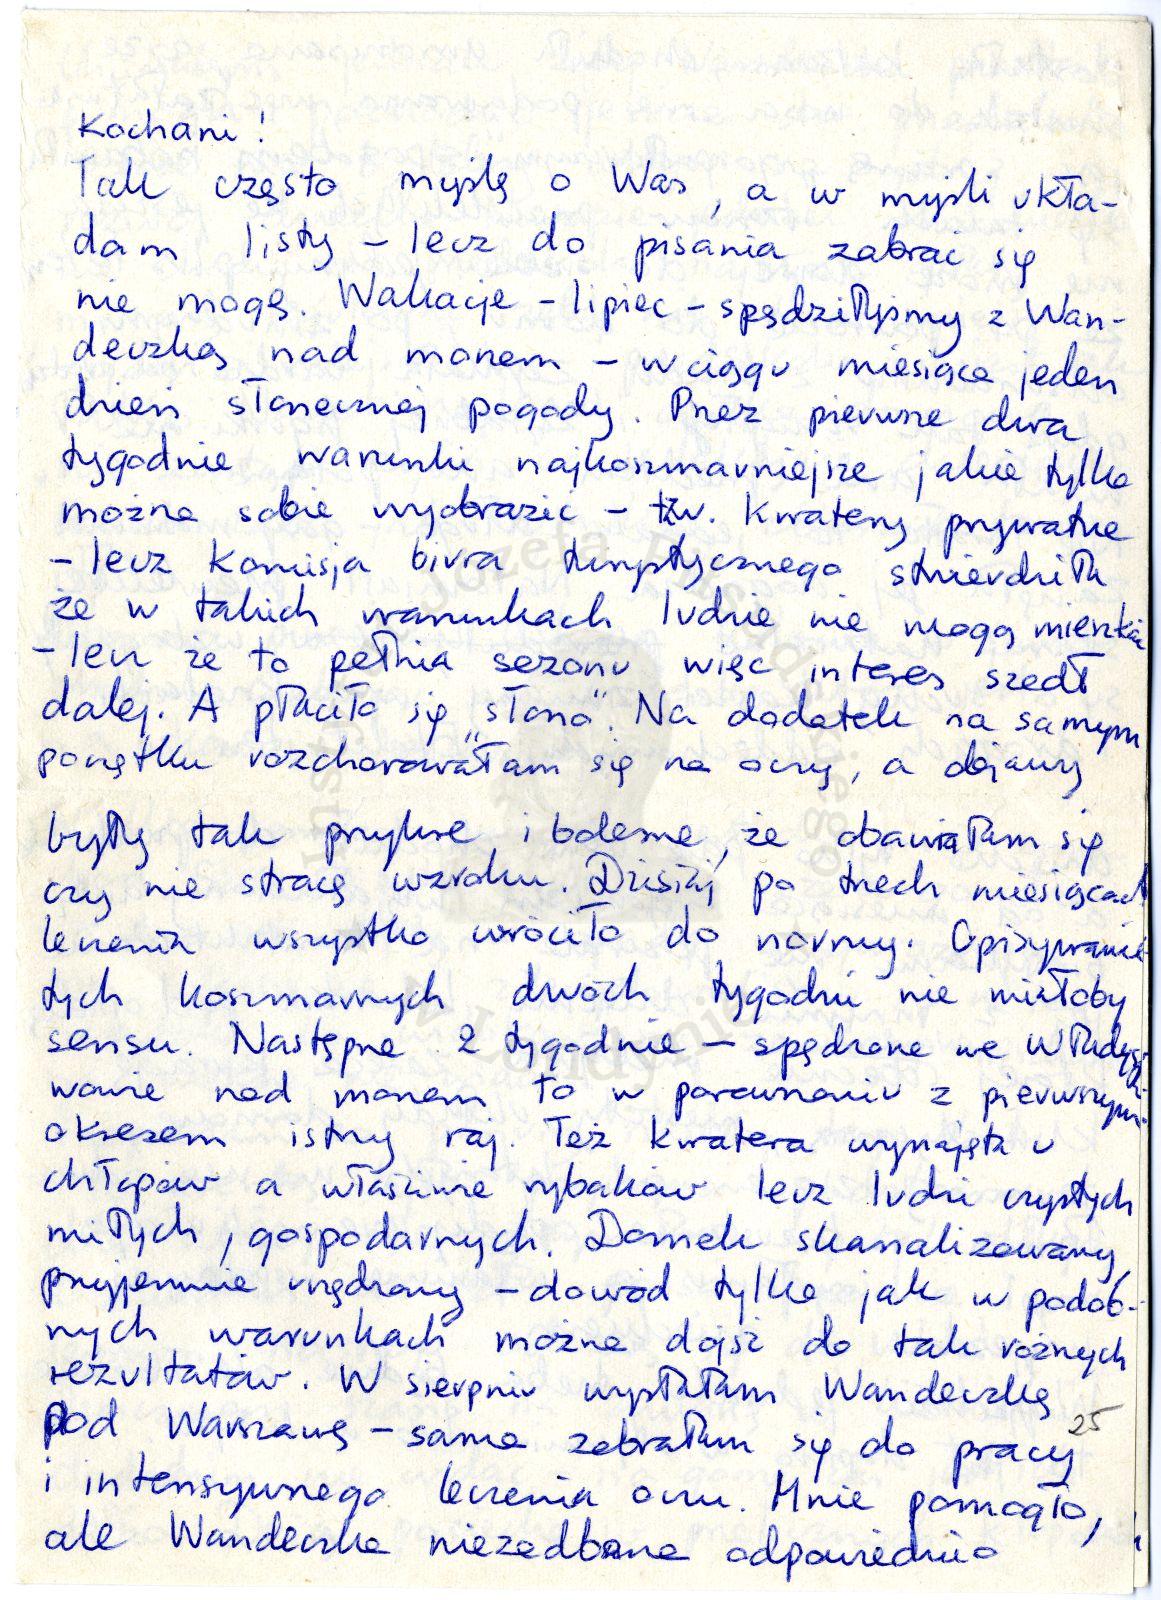 Kochani!
Tak często myślę o Was, a w myśli ukła-
dam listy – lecz do pisania zabrać się
nie mogę. Wakacje – lipiec – spędziłyśmy z Wan-
deczką nad morzem – w ciągu miesiąca jeden
dzień słonecznej pogody. Przez pierwsze dwa
tygodnie warunki najkoszmarniejsze jakie tylko
można sobie wyobrazić – tzw. kwatery prywatne
– lecz komisja biura turystycznego stwierdziła
że w takich warunkach ludzie nie mogą mieszkać
– lecz że to pełnia sezonu więc interes szedł
dalej. A płaciło się „słono". Na dodatek na samym
początku rozchorowałam się na oczy, a objawy
były tak przykre i bolesne, że obawiałam się
czy nie stracę wzroku. Dzisiaj po trzech miesiącach
leczenia wszystko wróciło do normy. Opisywanie
tych koszmarnych dwóch tygodni nie miałoby
sensu. Następne 2 tygodnie – spędzone we Władysła-
wowie nad morzem to w porównaniu z pierwszym
okresem istny raj. Też kwatera wynajęta u
chłopów a właściwie rybaków lecz ludzi czystych
miłych, gospodarnych. Domek skanalizowany,
przyjemnie urządzony – dowód tylko jak w podob-
nych warunkach można dojść do tak różnych
rezultatów. W sierpniu wysłałam Wandeczkę
pod Warszawę – sama zabrałam się do pracy
25
i intensywnego leczenia oczu. Mnie pomogło,
ale Wandeczka niezadbana odpowiednio
Józefa Piłsudskiego
w Londynie